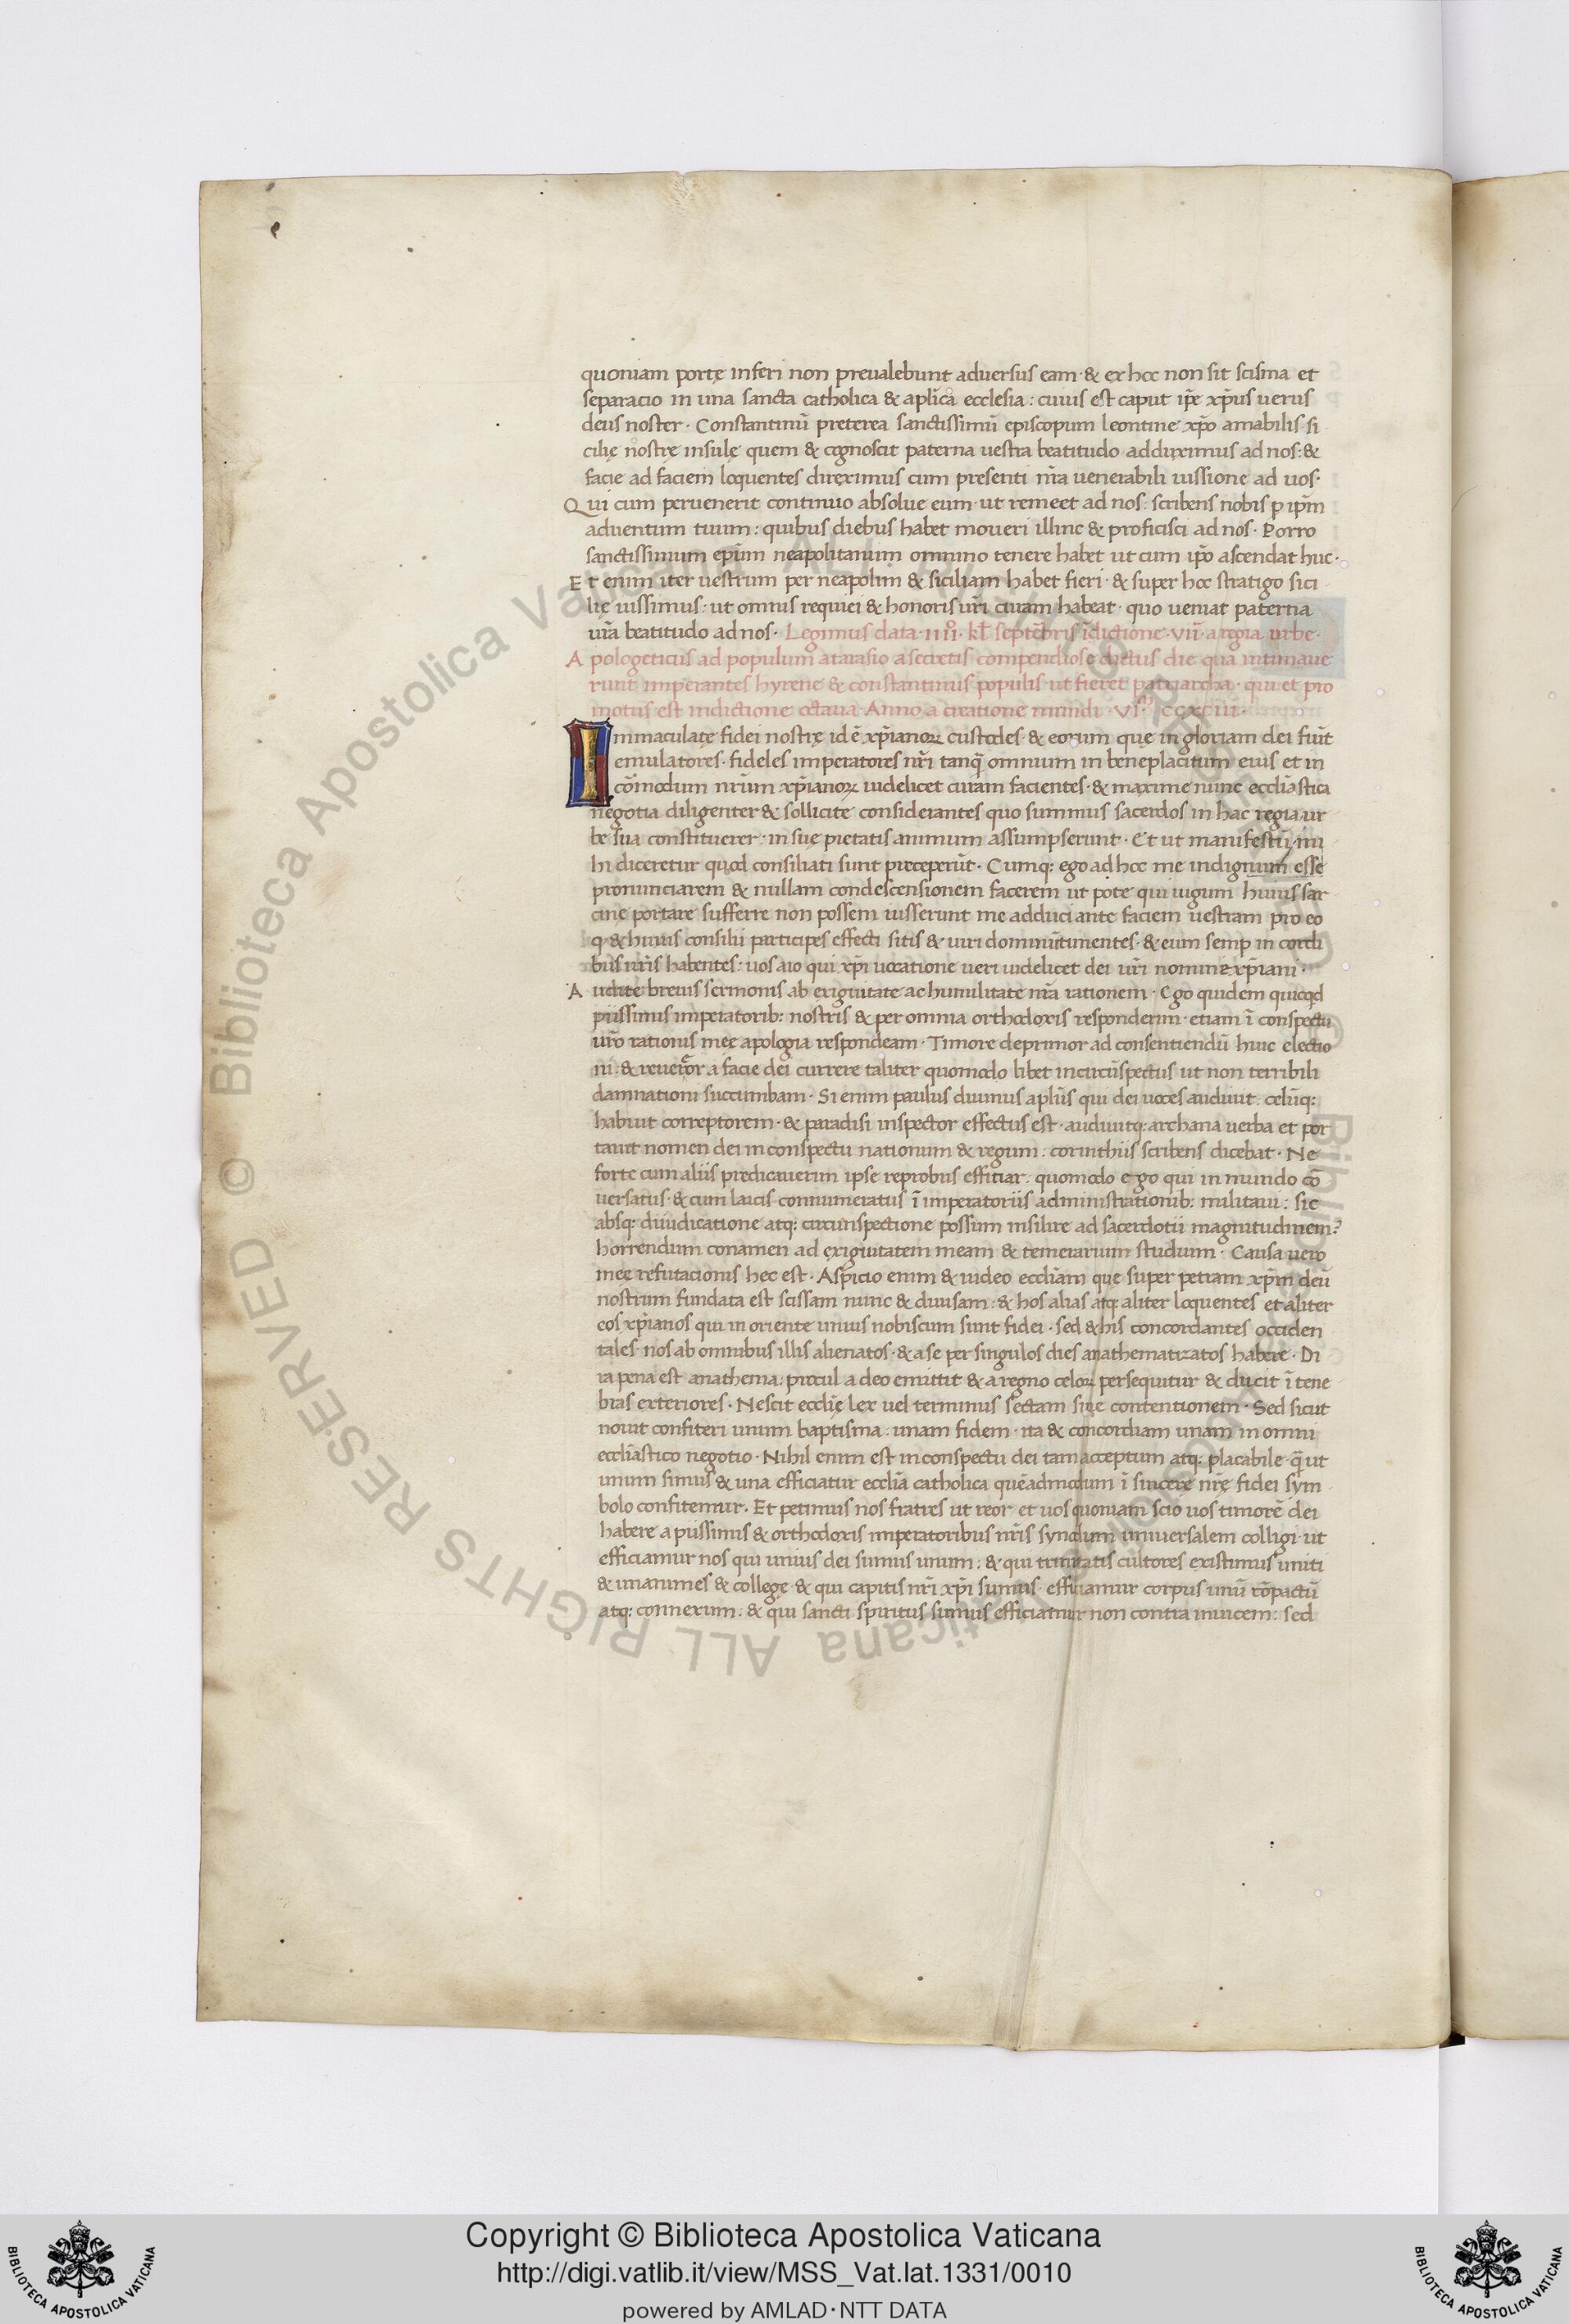 quoniam portę inferi non preualebunt aduersus eam · & ex hoc non sit scisma et
separatio in una sancta catholica & apłica ecclesia : cuius est caput ip̃e xp̃us uerus
deus noster · Constantinũ preterea sanctissimũ episcopum leontine xp̃o amabilis si
cilię nostrę insulę quem & cognoscit paterna uestra beatitudo adduximus ad nos : &
facie ad faciem loquentes direximus cum presenti nr̃a uenerabili iussione ad uos ·
Qui cum peruenerit continuo absolue eum · ut remeet ad nos : scribens nobis p ip̃m
aduentum tuum : quibus diebus habet moueri illinc & proficisci ad nos · Porro
sanctissimum ep̃um neapolitanum omnino tenere habet ut cum ip̃o ascendat huc ·
Et enim iter uestrum per neapolim & siciliam habet fieri · & super hoc stratigo sici
lię iussimus : ut omnis requiei & honoris ur̃i curam habeat · quo ueniat paterna
ur̃a beatitudo ad nos · Legimus data · IIII · kł septẽbris ĩdictione · VII · a regia urbe ·
Apologeticus ad populum a tarasio a secretis compendiose dictus die qua intimaue
runt imperantes hyrene & constantinus populis ut fieret patriarcha · qui et pro
motus est indictione octaua · Anno a creatione mundi · VI · CCXCIII ·
Immaculatę fidei nostrę id ẽ xp̃ianoꝝ custodes · & eorum quę in gloriam dei fiũt
emulatores · fideles imperatores nr̃i tanq̃ omnium in beneplacitum eius et in
cõmodum nr̃um xp̃ianoꝝ uidelicet curam facientes · & maxime nunc ecclĩastica
negotia diligenter & sollicite considerantes quo summus sacerdos in hac regia ur
be sua constitueret · in suę pietatis animum assumpserunt · Et ut manifestũ mi
hi diceretur quod consiliati sunt preceperũt · Cumq: ego ad hoc me indignum esse
pronunciarem & nullam condescensionem facerem ut pote qui iugum huius sar
cine portare sufferre non possem iusserunt me adduci ante faciem uestram pro eo
q & huius consilii participes effecti sitis & uiri dominũ timentes · & eum semp in cordi
bus ur̃is habentes : uos aio qui xp̃i uocatione ueri uidelicet dei ur̃i nomine xp̃iani ·
Audite breuis sermonis ab exiguitate ac humilitate mea rationem · Ego quidem quicqd
piissimis imperatorib: nostris & per omnia orthodoxis responderim · etiam ĩ conspectu
ur̃o rationis meę apologia respondeam · Timore deprimor ad consentiendũ huic electio
ni : & reuereor a facie dei currere taliter quomodo libet incircũspectus ut non terribili
damnationi succumbam · Si enim paulus diuinus aplũs qui dei uoces audiuit · celũq:
habuit correptorem · & paradisi inspector effectus est · audiuitq: archana uerba et por
tauit nomen dei in conspectu nationum & regum : corinthiis scribens dicebat · Ne
forte cum aliis predicauerim ipse reprobus efficiar · quomodo ego qui in mundo cõ
uersatus · & cum laicis connumeratus ĩ imperatoriis administrationib: militaui : sic
absq: diiudicatione atq: circunspectione possum insilire ad sacerdotii magnitudinem?
horrendum conamen ad exiguitatem meam & temerarium studium · Causa uero
meę refutacionis hec est · Aspicio enim & uideo ecclĩam quę super petram xp̃m deũ
nostrum fundata est scissam nunc & diuisam : & hos alias atq: aliter loquentes et aliter
eos xp̃ianos qui in oriente unius nobiscum sunt fidei · sed & his concordantes occiden
tales · nos ab omnibus illis alienatos · & a se per singulos dies anathematizatos habere · Di
ra pena est anathema : procul a deo emittit & a regno celoꝝ persequitur & ducit ĩ tene
bras exteriores · Nescit ecclĩę lex uel terminus sectam siue contentionem · Sed sicut
nouit confiteri unum baptisma : unam fidem · ita & concordiam unam in omni
ecclĩastico negotio · Nihil enim est in conspectu dei tam acceptum atq: placabile q̃ ut
unum simus & una efficiatur ecclĩa catholica quẽadmodum ĩ sincere nr̃ę fidei sym
bolo confitemur · Et petimus nos fratres ut reor et uos quoniam scio uos timorẽ dei
habere a piissimis & orthodoxis imperatoribus nr̃is synodum uniuersalem colligi · ut
efficiamur nos qui unius dei sumus unum : & qui trinitatis cultores existimus uniti
& unanimes & college · & qui capitis nr̃i xp̃i sumus · efficiamur corpus unũ cõpactũ
atq: connexum : & qui sancti spiritus sumus efficiamur non contra inuicem : sed
Copyright © Biblioteca Apostolica Vaticana
http://digi.vatlib.it/view/MSS_Vat.lat.1331/0010
powered by AMLAD·NTT DATA
BIBLIOTECA APOSTOLICA VATICANA
BIBLIOTECA APOSTOLICA VATICANA